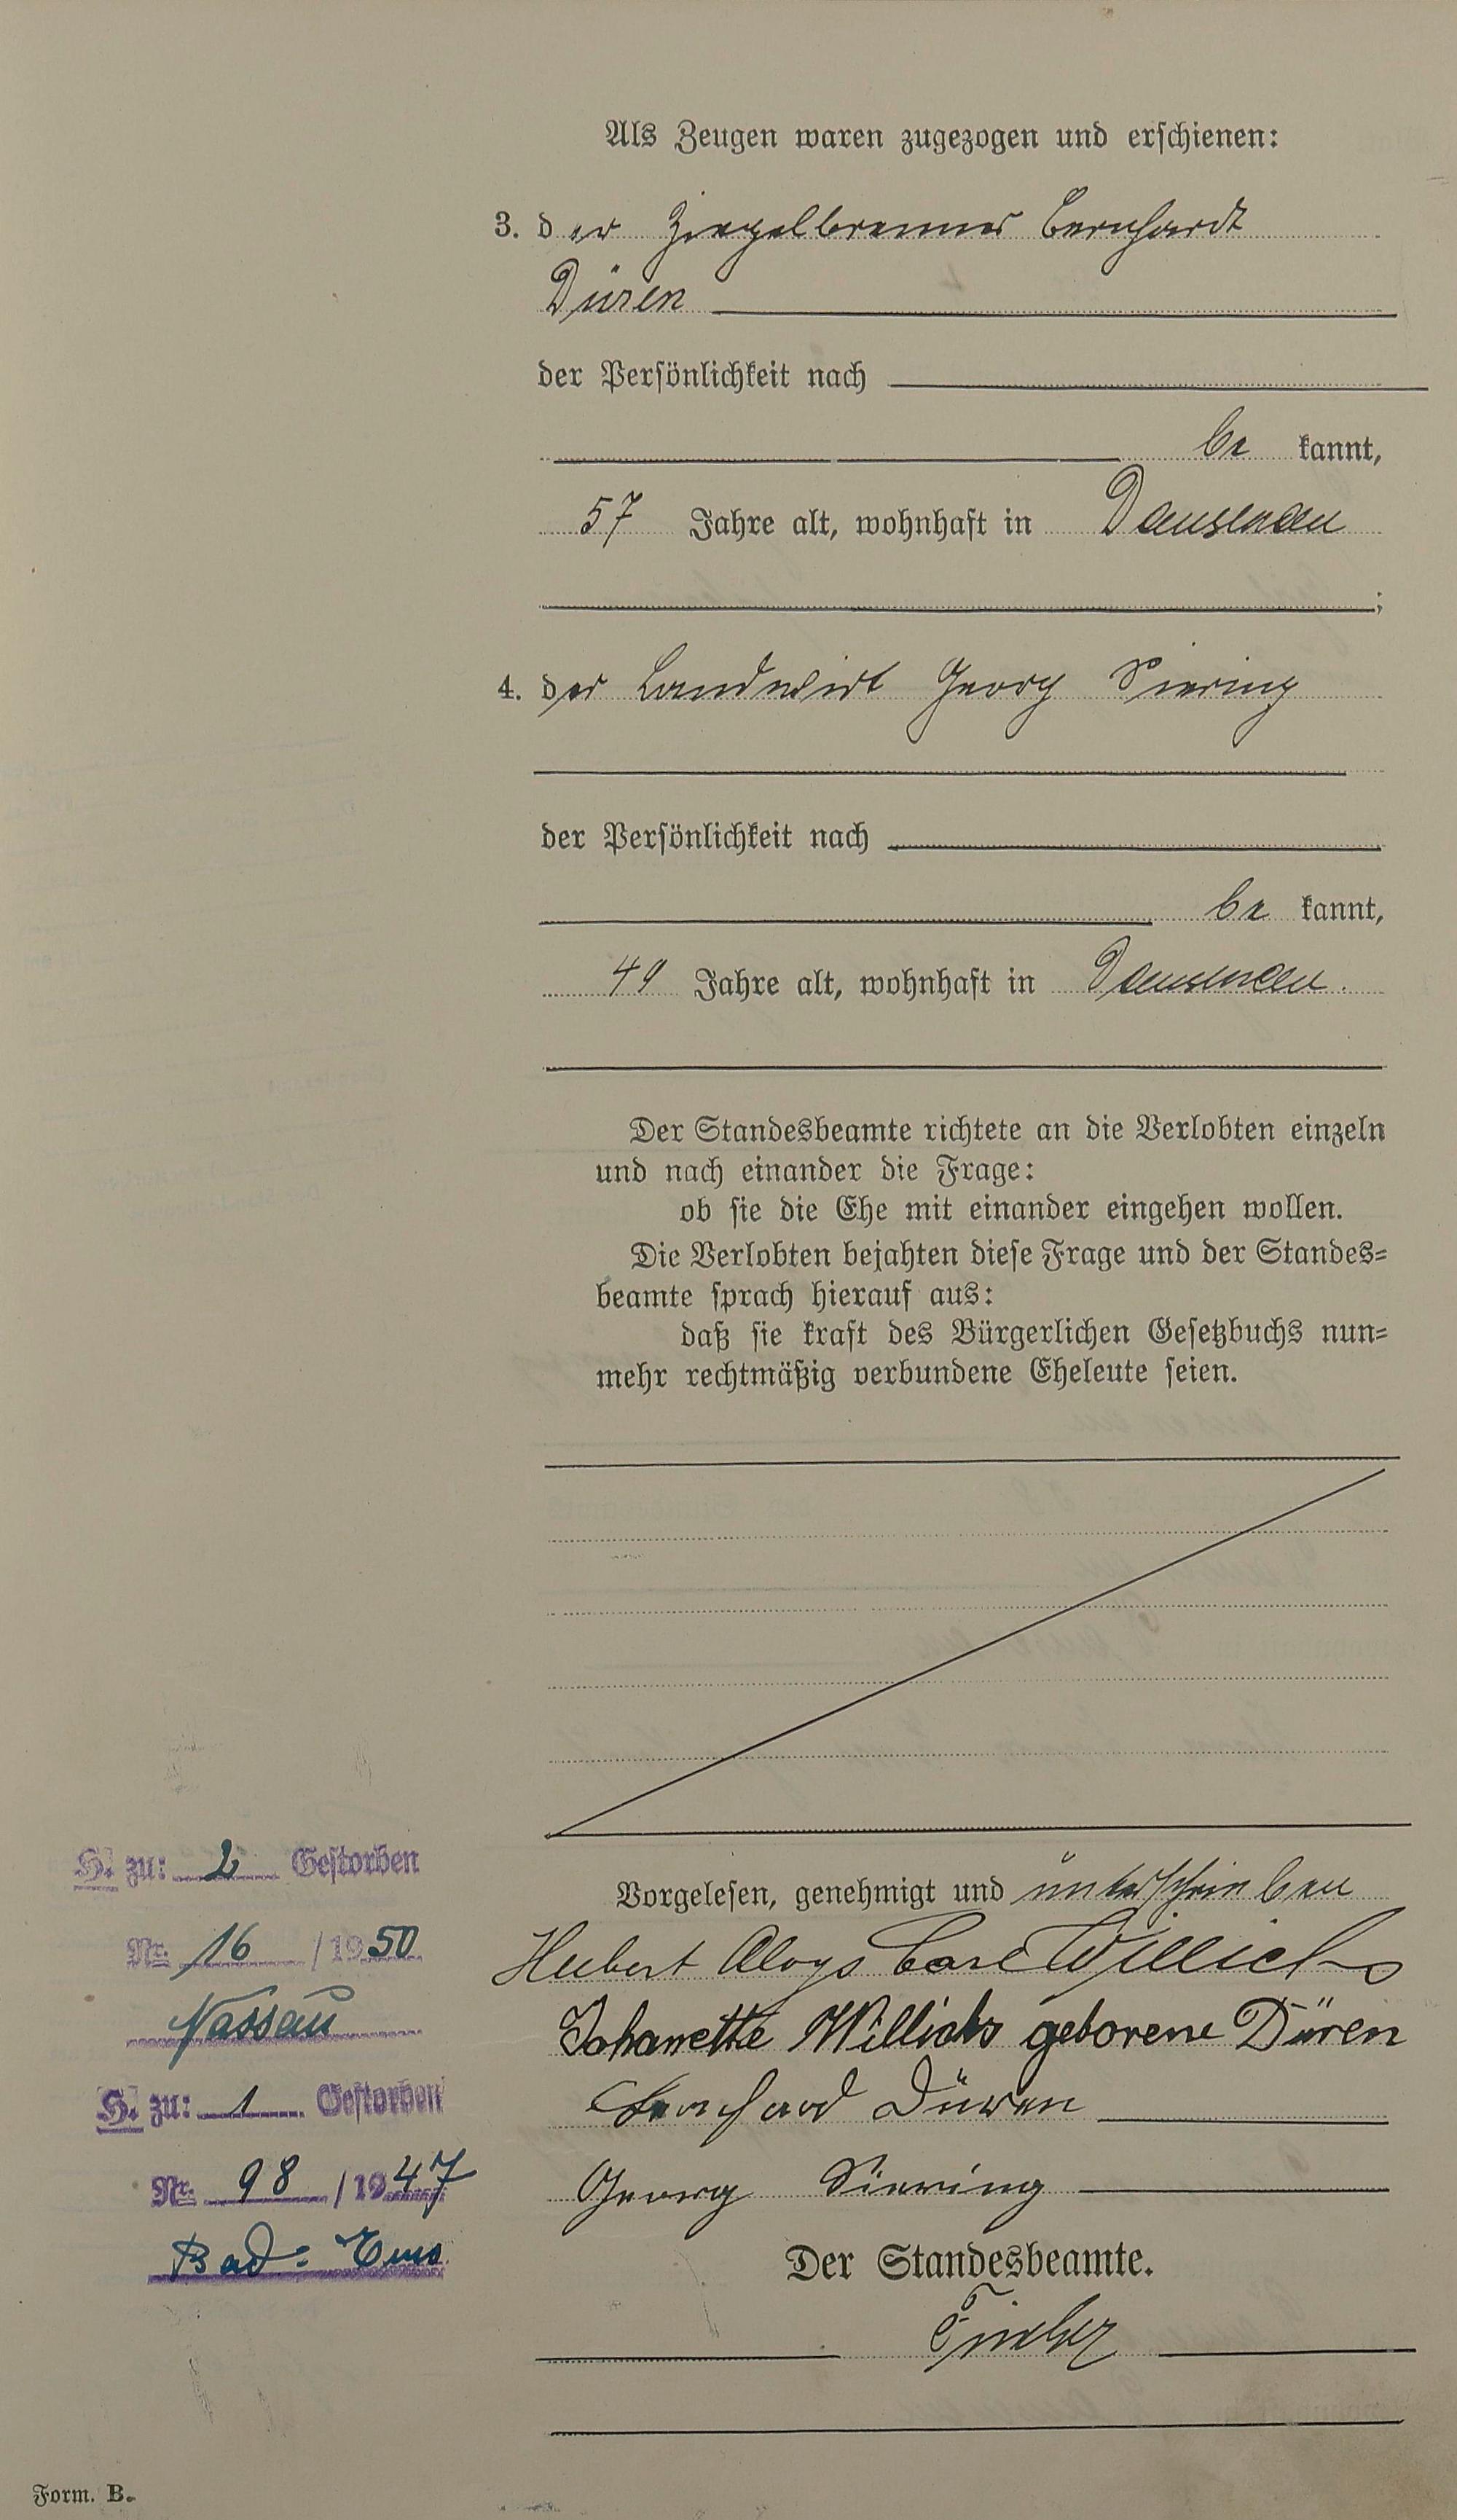 Als Zeugen waren zugezogen und erschienen:
3. der Ziegelbrenner Bernhardt
Düren
der Persönlichkeit nach
be kannt,
57 Jahre alt, wohnhaft in Dausenau
;
4. der Landwirt Georg Siering
der Persönlichkeit nach
be kannt,
49 Jahre alt, wohnhaft in Dausenau.
Der Standesbeamte richtete an die Verlobten einzeln
und nach einander die Frage:
ob sie die Ehe mit einander eingehen wollen.
Die Verlobten bejahten diese Frage und der Standes=
beamte sprach hierauf aus:
daß sie kraft des Bürgerlichen Gesetzbuchs nun=
mehr rechtmäßig verbundene Eheleute seien.
Vorgelesen, genehmigt und unterschrieben
Hubert Aloys Carl Willichs
Johanette Willichs geborene Düren
Bernhard Düren
Georg Siering
Der Standesbeamte.
H. zu: 2 Gestorben
Nr. 16 / 1950
Nassau
H. zu: 1 Gestorben
Nr. 98 / 1947
Bad=Ems
Form. B.